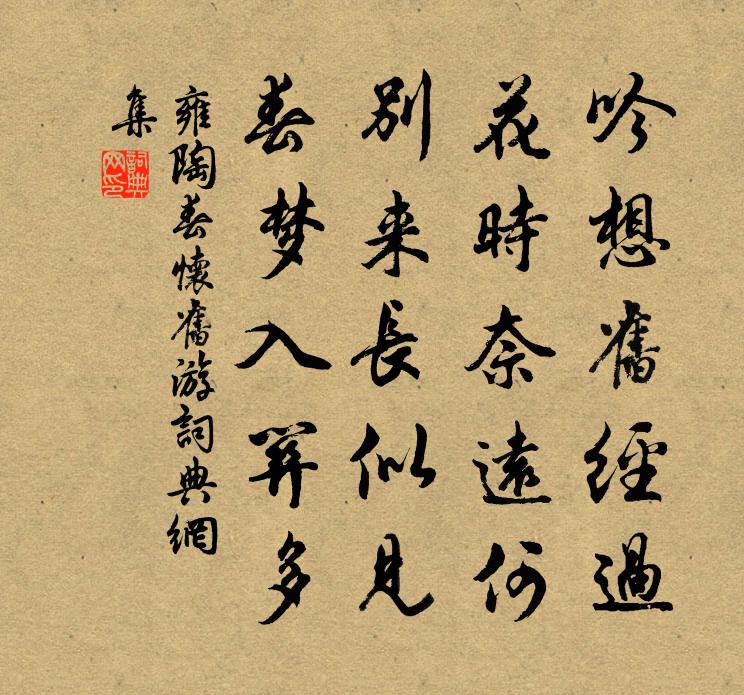 吟想舊經過
花時奈遠何
別来長似見
春梦入關多
雍陶春懷舊游詞典網
集
詞典
网印